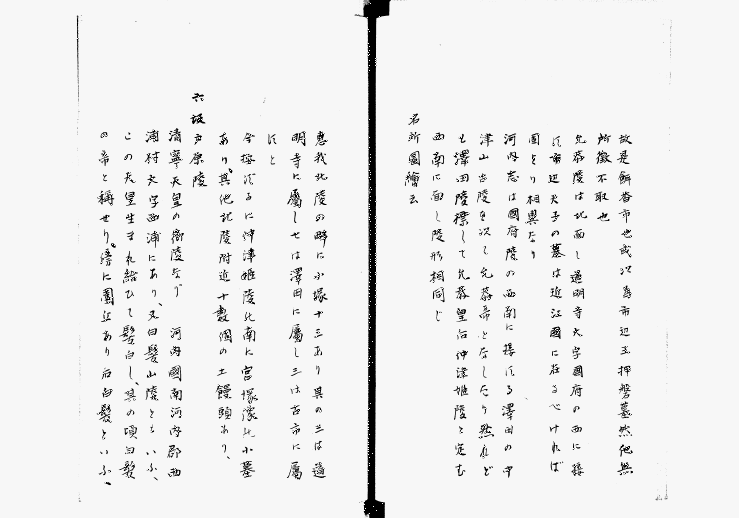 故是餌香市也或以為市辺王押磐墓然他無
所徴不取也
允恭陵は北面し道明寺大字國府の西に接
す市辺天子の墓は近江國に在るべければ
固より相異なり
河内志は國府陵の西南に接する澤田の中
津山古陵を以て允恭帝となしたり然れど
も澤田陵標して允恭皇后仲津姫陵と定む
西南に面し陵形相同じ
名所圖繪云
惠我北陵の畔に小塚十三あり其の三は道
明寺に屬し七は澤田に屬し三は古市に屬
すと
今按ずるに仲津姫陵北南に宮塚塚北小墓
あり、其他北陵附近十數個の土饅頭あり、
六 坂戸原陵
清寧天皇の御陵なり 河内國南河内郡西
浦村大字西浦にあり、又白髪山陵ともいふ、
この天皇生まれ給ひて髪白し、其の頃白髪
の帝と稱せり、傍に圓丘あり后白髪といふ、